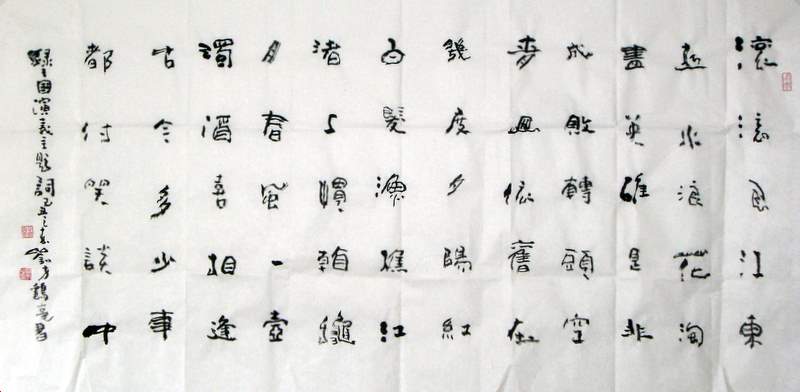 滾滾長江東
逝水浪花淘
盡英雄是非
成敗轉頭空
青山依舊在
幾度夕陽紅
白髮漁樵江
渚上慣看龝
月春風一壺
濁酒喜相逢
古今多少事
都付笑談中
錄三國演義主題詞